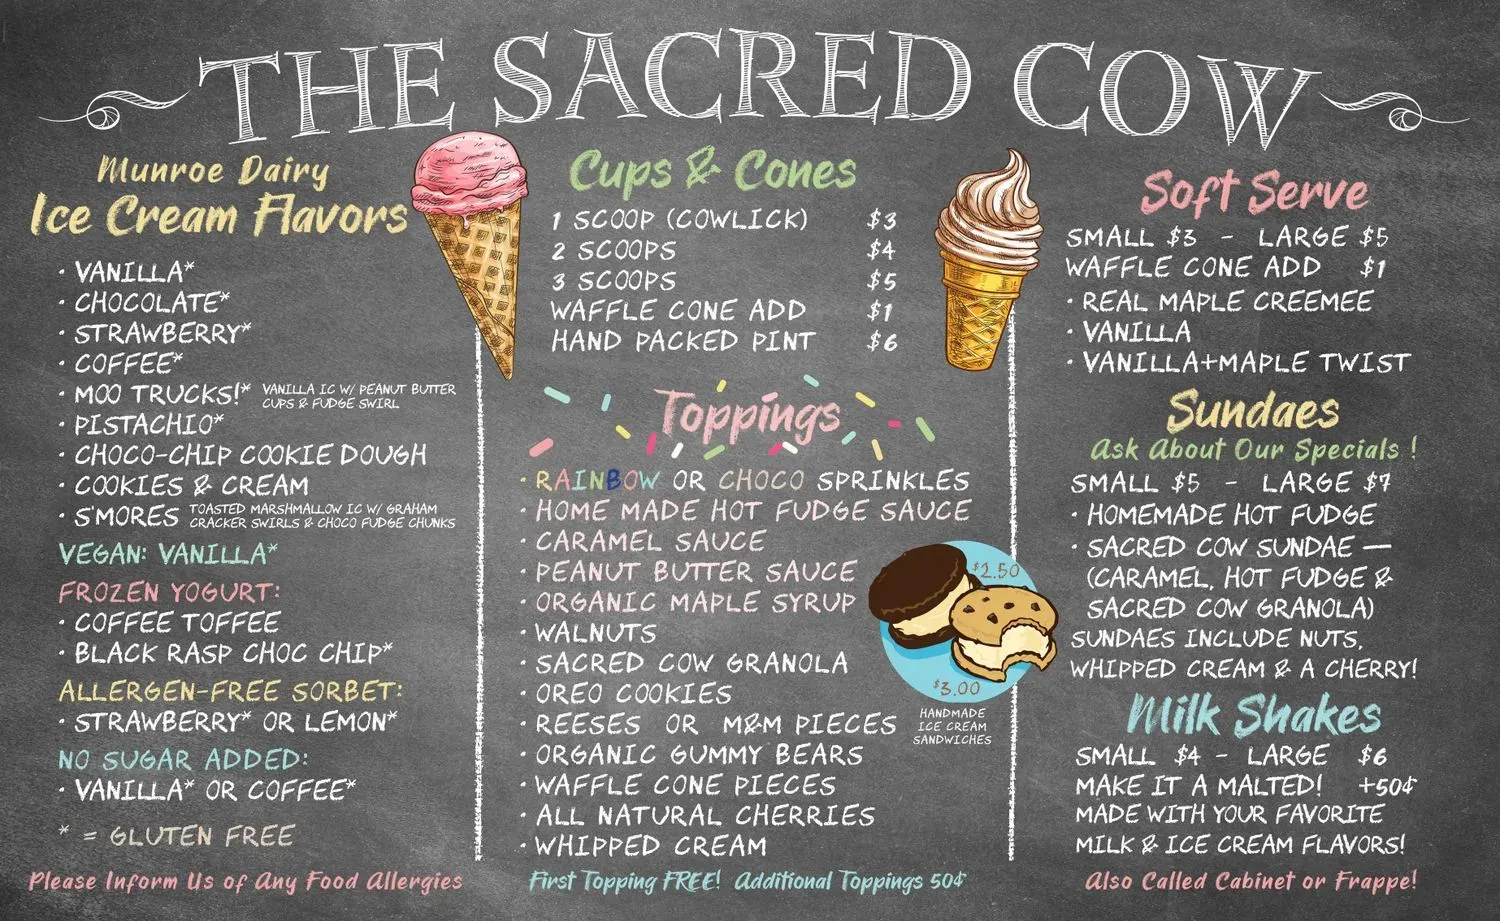 THE SACRED COW
Munroe Dairy
Ice Cream Flavors
· VANILLA*
· CHOCOLATE*
· STRAWBERRY*
· COFFEE*
· MOO TRUCKS!* VANILLA IC W/ PEANUT BUTTER
CUPS & FUDGE SWIRL
· PISTACHIO*
· CHOCO-CHIP COOKIE DOUGH
· COOKIES & CREAM
· S'MORES TOASTED MARSHMALLOW IC W/ GRAHAM
CRACKER SWIRLS & CHOCO FUDGE CHUNKS
VEGAN: VANILLA*
FROZEN YOGURT:
· COFFEE TOFFEE
· BLACK RASP CHOC CHIP*
ALLERGEN-FREE SORBET:
· STRAWBERRY* OR LEMON*
NO SUGAR ADDED:
· VANILLA* OR COFFEE*
* = GLUTEN FREE
Please Inform Us of Any Food Allergies
Cups & Cones
1 SCOOP (COWLICK) $3
2 SCOOPS $4
3 SCOOPS $5
WAFFLE CONE ADD $1
HAND PACKED PINT $6
Toppings
· RAINBOW OR CHOCO SPRINKLES
· HOME MADE HOT FUDGE SAUCE
· CARAMEL SAUCE
· PEANUT BUTTER SAUCE
· ORGANIC MAPLE SYRUP
· WALNUTS
· SACRED COW GRANOLA
· OREO COOKIES
· REESES OR M&M PIECES
· ORGANIC GUMMY BEARS
· WAFFLE CONE PIECES
· ALL NATURAL CHERRIES
· WHIPPED CREAM
First Topping FREE! Additional Toppings 50¢
$2.50
$3.00
HANDMADE
ICE CREAM
SANDWICHES
Soft Serve
SMALL $3 - LARGE $5
WAFFLE CONE ADD $1
· REAL MAPLE CREEMEE
· VANILLA
· VANILLA+MAPLE TWIST
Sundaes
Ask About Our Specials !
SMALL $5 - LARGE $7
· HOMEMADE HOT FUDGE
· SACRED COW SUNDAE —
(CARAMEL, HOT FUDGE &
SACRED COW GRANOLA)
SUNDAES INCLUDE NUTS,
WHIPPED CREAM & A CHERRY!
Milk Shakes
SMALL $4 - LARGE $6
MAKE IT A MALTED! +50¢
MADE WITH YOUR FAVORITE
MILK & ICE CREAM FLAVORS!
Also Called Cabinet or Frappe!